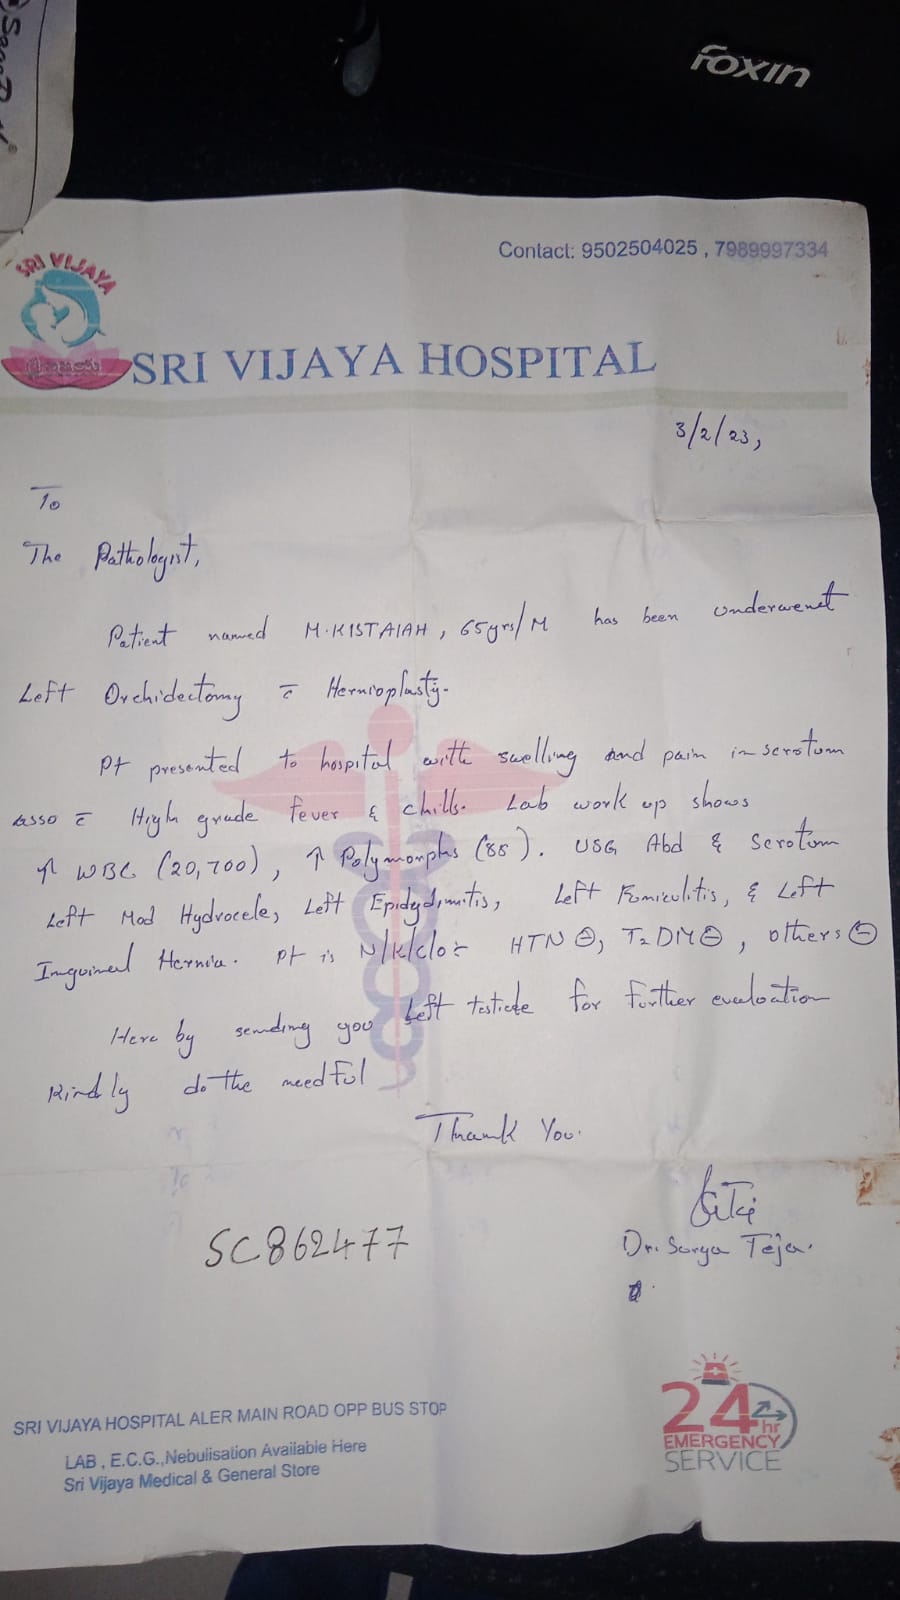 foxin
SRI VIJAYA
Contact: 9502504025 , 7989997334
SRI VIJAYA HOSPITAL
3/2/23,
To
The Pathologist,
Patient named M.KISTAIAH, 65yrs/M has been underwenet
Left Orchidectomy c̄ Hernioplasty.
Pt presented to hospital with swelling and pain in scrotum
asso c̄ High grade fever & chills. Lab work up shows
↑ WBC (20,700), ↑ Polymorphs (88). USG Abd & Scrotum
Left Mod Hydrocele, Left Epidydimitis, Left Funiculitis, & Left
Inguinal Hernia. Pt is N/K/C/O :- HTN ⊖, T2DM ⊖, others ⊖
Here by sending you Left testicle for further evaluation
Kindly do the needful
Thank You.
Dr. Surya Teja.
SC862477
SRI VIJAYA HOSPITAL ALER MAIN ROAD OPP BUS STOP
LAB , E.C.G.,Nebulisation Available Here
Sri Vijaya Medical & General Store
24hr
EMERGENCY
SERVICE